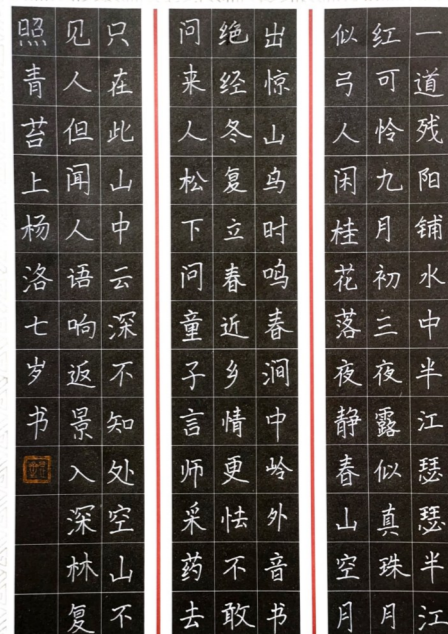 一道残阳铺水中半江瑟瑟半江
红可怜九月初三夜露似真珠月
似弓人闲桂花落夜静春山空月
出惊山鸟时鸣春涧中岭外音书
绝经冬复立春近乡情更怯不敢
问来人松下问童子言师采药去
只在此山中云深不知处空山不
见人但闻人语响返景入深林复
照青苔上杨洛七岁书